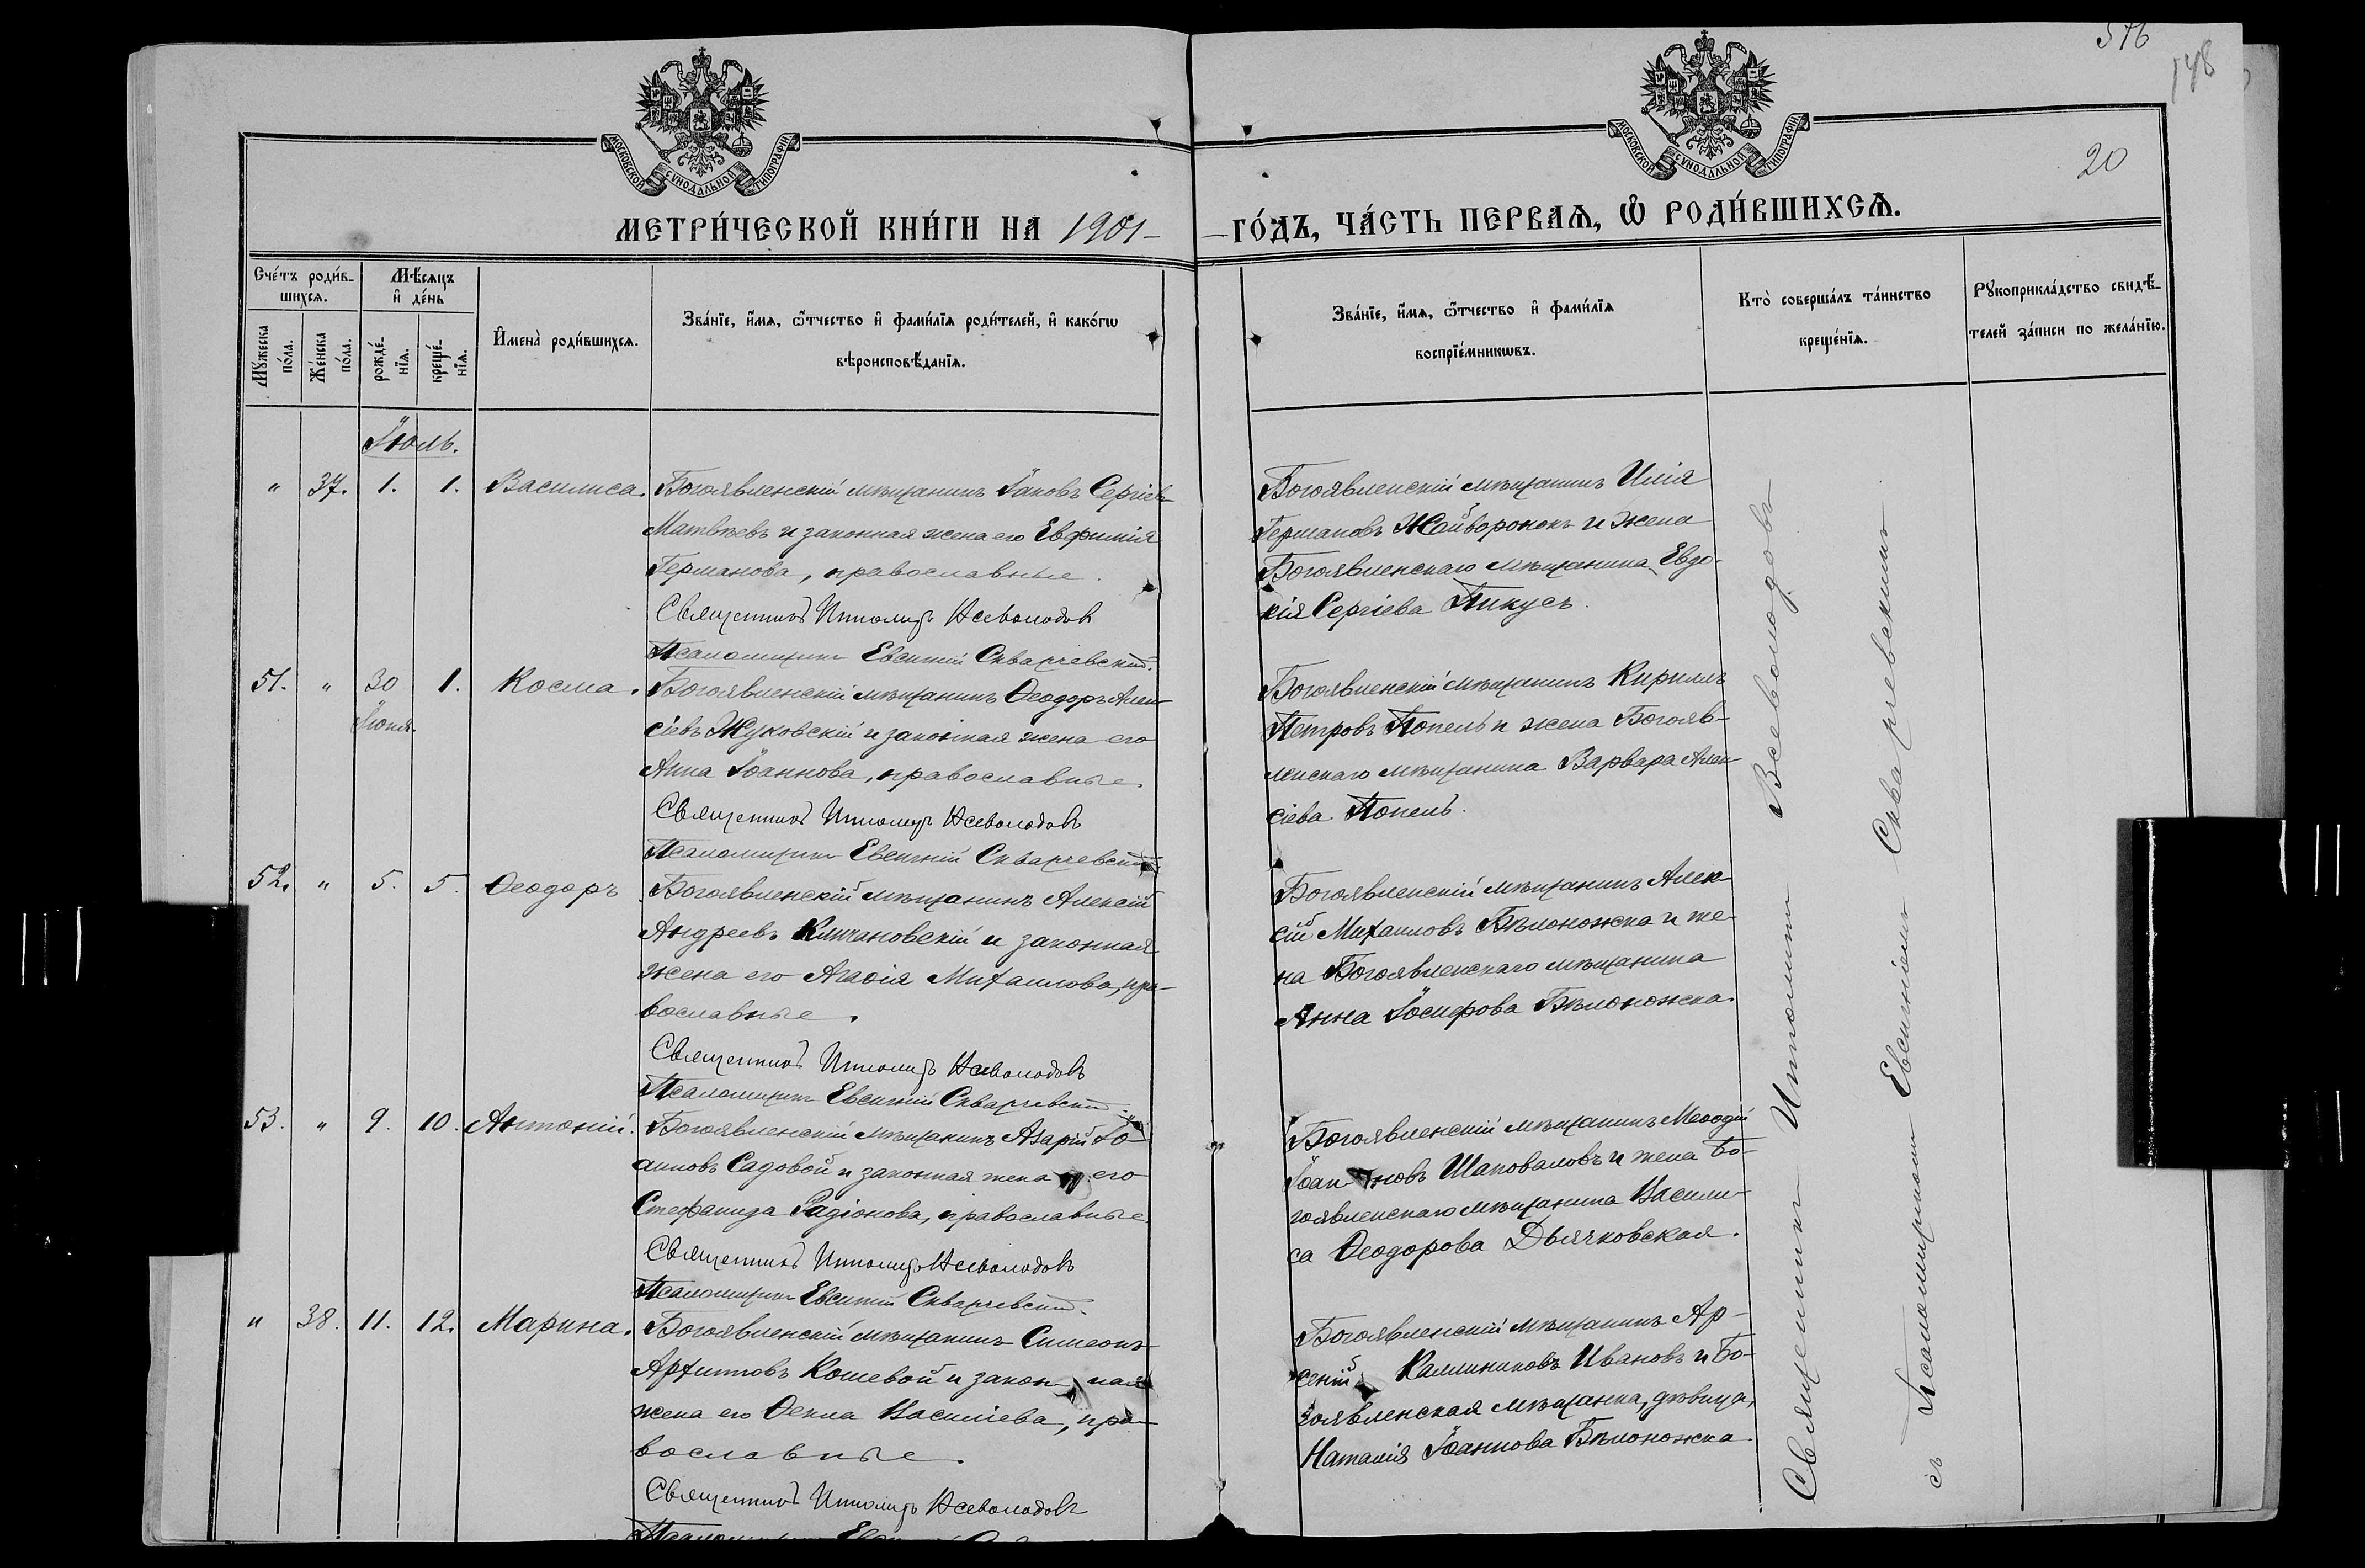 576
148
МОСКОВСКОЙ СѴНОДАЛЬНОЙ ТИПОГРАФІИ
МОСКОВСКОЙ СѴНОДАЛЬНОЙ ТИПОГРАФІИ
20
МЕТРИ́ЧЕСКОЙ КНИ́ГИ НА 1901
ГО́ДЪ, ЧА́СТЬ ПЕРВАѦ, Ѡ҆ РОДИ́ВШИХСѦ.
Сче́тъ роди́в-
шихсѧ.
Мꙋ́жеска
по́ла.
Же́нска
по́ла.
Мѣ́сѧцъ
и҆ де́нь
рожде́-
нїѧ.
креще́-
нїѧ.
И҆мена̀ роди́вшихсѧ.
Зва́нїе, и҆́мѧ, ѻ҆́тчество и҆ фами́лїѧ роди́телей, и҆ како́гѡ
вѣроисповѣ́данїѧ.
Зва́нїе, и҆́мѧ, ѻ҆́тчество и҆ фами́лїѧ
воспрїе́мникѡвъ.
Кто̀ соверша́лъ та́инство
креще́нїѧ.
Рꙋкоприкла́дство свидѣ́-
телей за́писи по жела́нїю.
Іюль.
" 37. 1. 1. Василиса. Богоявленскій мѣщанинъ Іаковъ Сергіев
Матвѣевъ и законная жена его Евфимія
Германова, православные.
Священникъ Ипполитъ Всеволодовъ
Псаломщикъ Евгеній Скварчевскій.
Богоявленскій мѣщанинъ Илія
Германовъ Жайворонокъ и жена
Богоявленскаго мѣщанина Евдо-
кія Сергіева Пикусъ.
51. " 30 1. Косма. Богоявленскій мѣщанинъ Ѳеодоръ Алек-
Іюня. сіевъ Жуковскій и законная жена его
Анна Іоаннова, православные
Священникъ Ипполитъ Всеволодовъ
Псаломщикъ Евгеній Скварчевскій
Богоявленскій мѣщанинъ Кириллъ
Петровъ Попель и жена Богояв-
ленскаго мѣщанина Варвара Алек
сіева Попель.
52. " 5. 5. Ѳеодоръ Богоявленскій мѣщанинъ Алексій
Андреевъ Климановскій и законная
жена его Агаѳія Михаилова, пра-
вославные.
Священникъ Ипполитъ Всеволодовъ
Псаломщикъ Евгеній Скварчевскій.
Богоявленскій мѣщанинъ Алек-
сій Михаиловъ Бѣлоножка и же-
на Богоявленскаго мѣщанина
Анна Іосифова Бѣлоножка.
53. " 9. 10. Антоній. Богоявленскій мѣщанинъ Азарій Іо-
анновъ Садовой и законная жена его
Стефанида Радіонова, православные
Священникъ Ипполитъ Всеволодовъ
Псаломщикъ Евгеній Скварчевскій.
Богоявленскій мѣщанинъ Меѳодій
Іоанновъ Шаповаловъ и жена Бо-
гоявленскаго мѣщанина Васили-
са Ѳеодорова Дьячковская.
" 38. 11. 12. Марина. Богоявленскій мѣщанинъ Симеонъ
Архиповъ Кошевой и законная
жена его Ѳекла Василіева, пра-
вославные.
Священникъ Ипполитъ Всеволодовъ
Богоявленскій мѣщанинъ Ар-
сеній Каллиниковъ Ивановъ и Бо-
гоявленская мѣщанка, дѣвица,
Наталія Іоаннова Бѣлоножка.
Священникъ Ипполитъ Всеволодовъ
съ Псаломщикомъ Евгеніемъ Скварчевскимъ